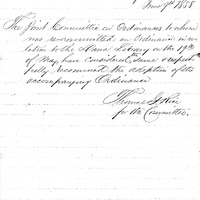 June 9th 1858
The Joint Committee on Ordinances to whom
was re-committed an Ordinance in re-
lation to the Library on the 19th
of May, have considered the same & respect-
fully recommend the adoption of the
accompanying Ordinance
Thomas
for the Committee.